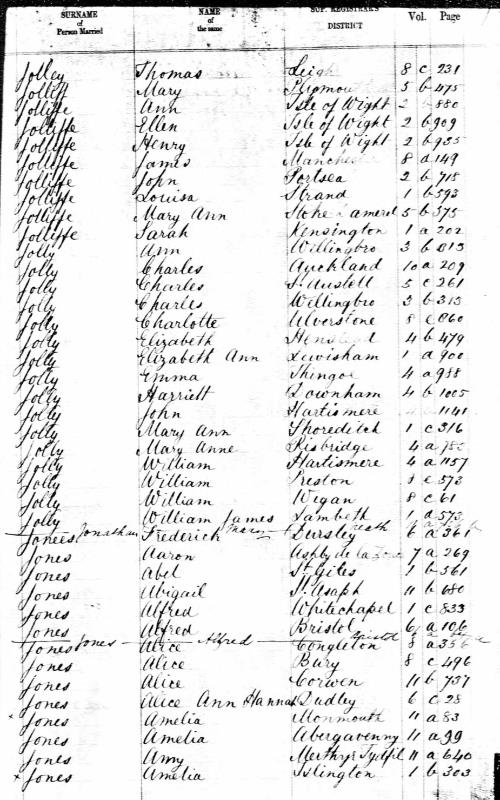 SURNAME of Person Married NAME of the same SUP. REGISTRAR'S DISTRICT Vol. Page
Jolley Thomas Leigh 8 c 231
Jolliff Mary Plymouth 5 b 475
Jolliffe Ann Isle of Wight 2 b 880
Jolliffe Ellen Isle of Wight 2 b 909
Jolliffe Henry Isle of Wight 2 b 935
Jolliffe James Manchester 8 d 149
Jolliffe John Portsea 2 b 718
Jolliffe Louisa Strand 1 b 593
Jolliffe Mary Ann Stoke Damerel 5 b 575
Jolliffe Sarah Kensington 1 a 202
Jolly Ann Willingbro 3 b
Jolly Charles Auckland 10 a 209
Jolly Charles St Austell 5 c 261
Jolly Charles Wellingbro 3 b 313
Jolly Charlotte Ulverstone 8 e 860
Jolly Elizabeth 4 b 479
Jolly Elizabeth Ann Lewisham 1 d 900
Jolly Emma Thingoe 4 a 988
Jolly Harriett Downham 4 b 1005
Jolly John Hartismere 1141
Jolly Mary Ann Shoreditch 1 c 316
Jolly Mary Anne Risbridge 4 a 785
Jolly William Hartismere 4 a 1157
Jolly William Preston 8 e 573
Jolly William Wigan 8 c 61
Jolly William James Lambeth 1 d 573
Jones Jonathan Neath
Jonees Frederick Dursley 6 a 361
Jones Aaron Ashby de la Zouch 7 a 269
Jones Abel St Giles 1 b 561
Jones Abigail St Asaph 11 b 680
Jones Alfred Whitechapel 1 c 833
Jones Alfred Bristol 6 a 106
Jones Alfred Bristol
Jones Alice Congleton 8 a 336
Jones Alice Bury 8 c 496
Jones Alice Corwen 11 b 737
Jones Alice Ann Hannah Dudley 6 c 28
x Jones Amelia Monmouth 11 a 83
Jones Amelia Abergavenny 11 a 99
Jones Amy Merthyr Tydfil 11 a 640
x Jones Amelia Islington 1 b 303